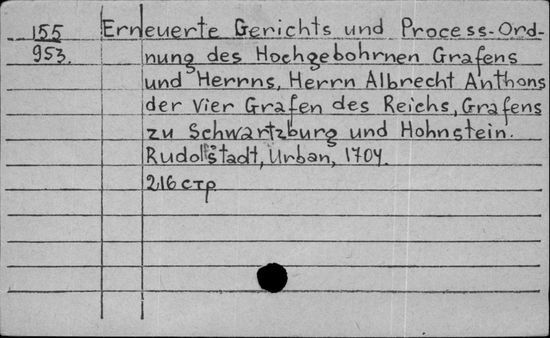 155 Erneuerte Gerichts und Process-Ord-
953. nung des Hochgebohrnen Grafens
und Herrns, Herrn Albrecht Anthons
der Vier Grafen des Reichs, Grafens
zu Schwartzburg und Hohnstein.
Rudolstadt, Urban, 1704.
216 стр.